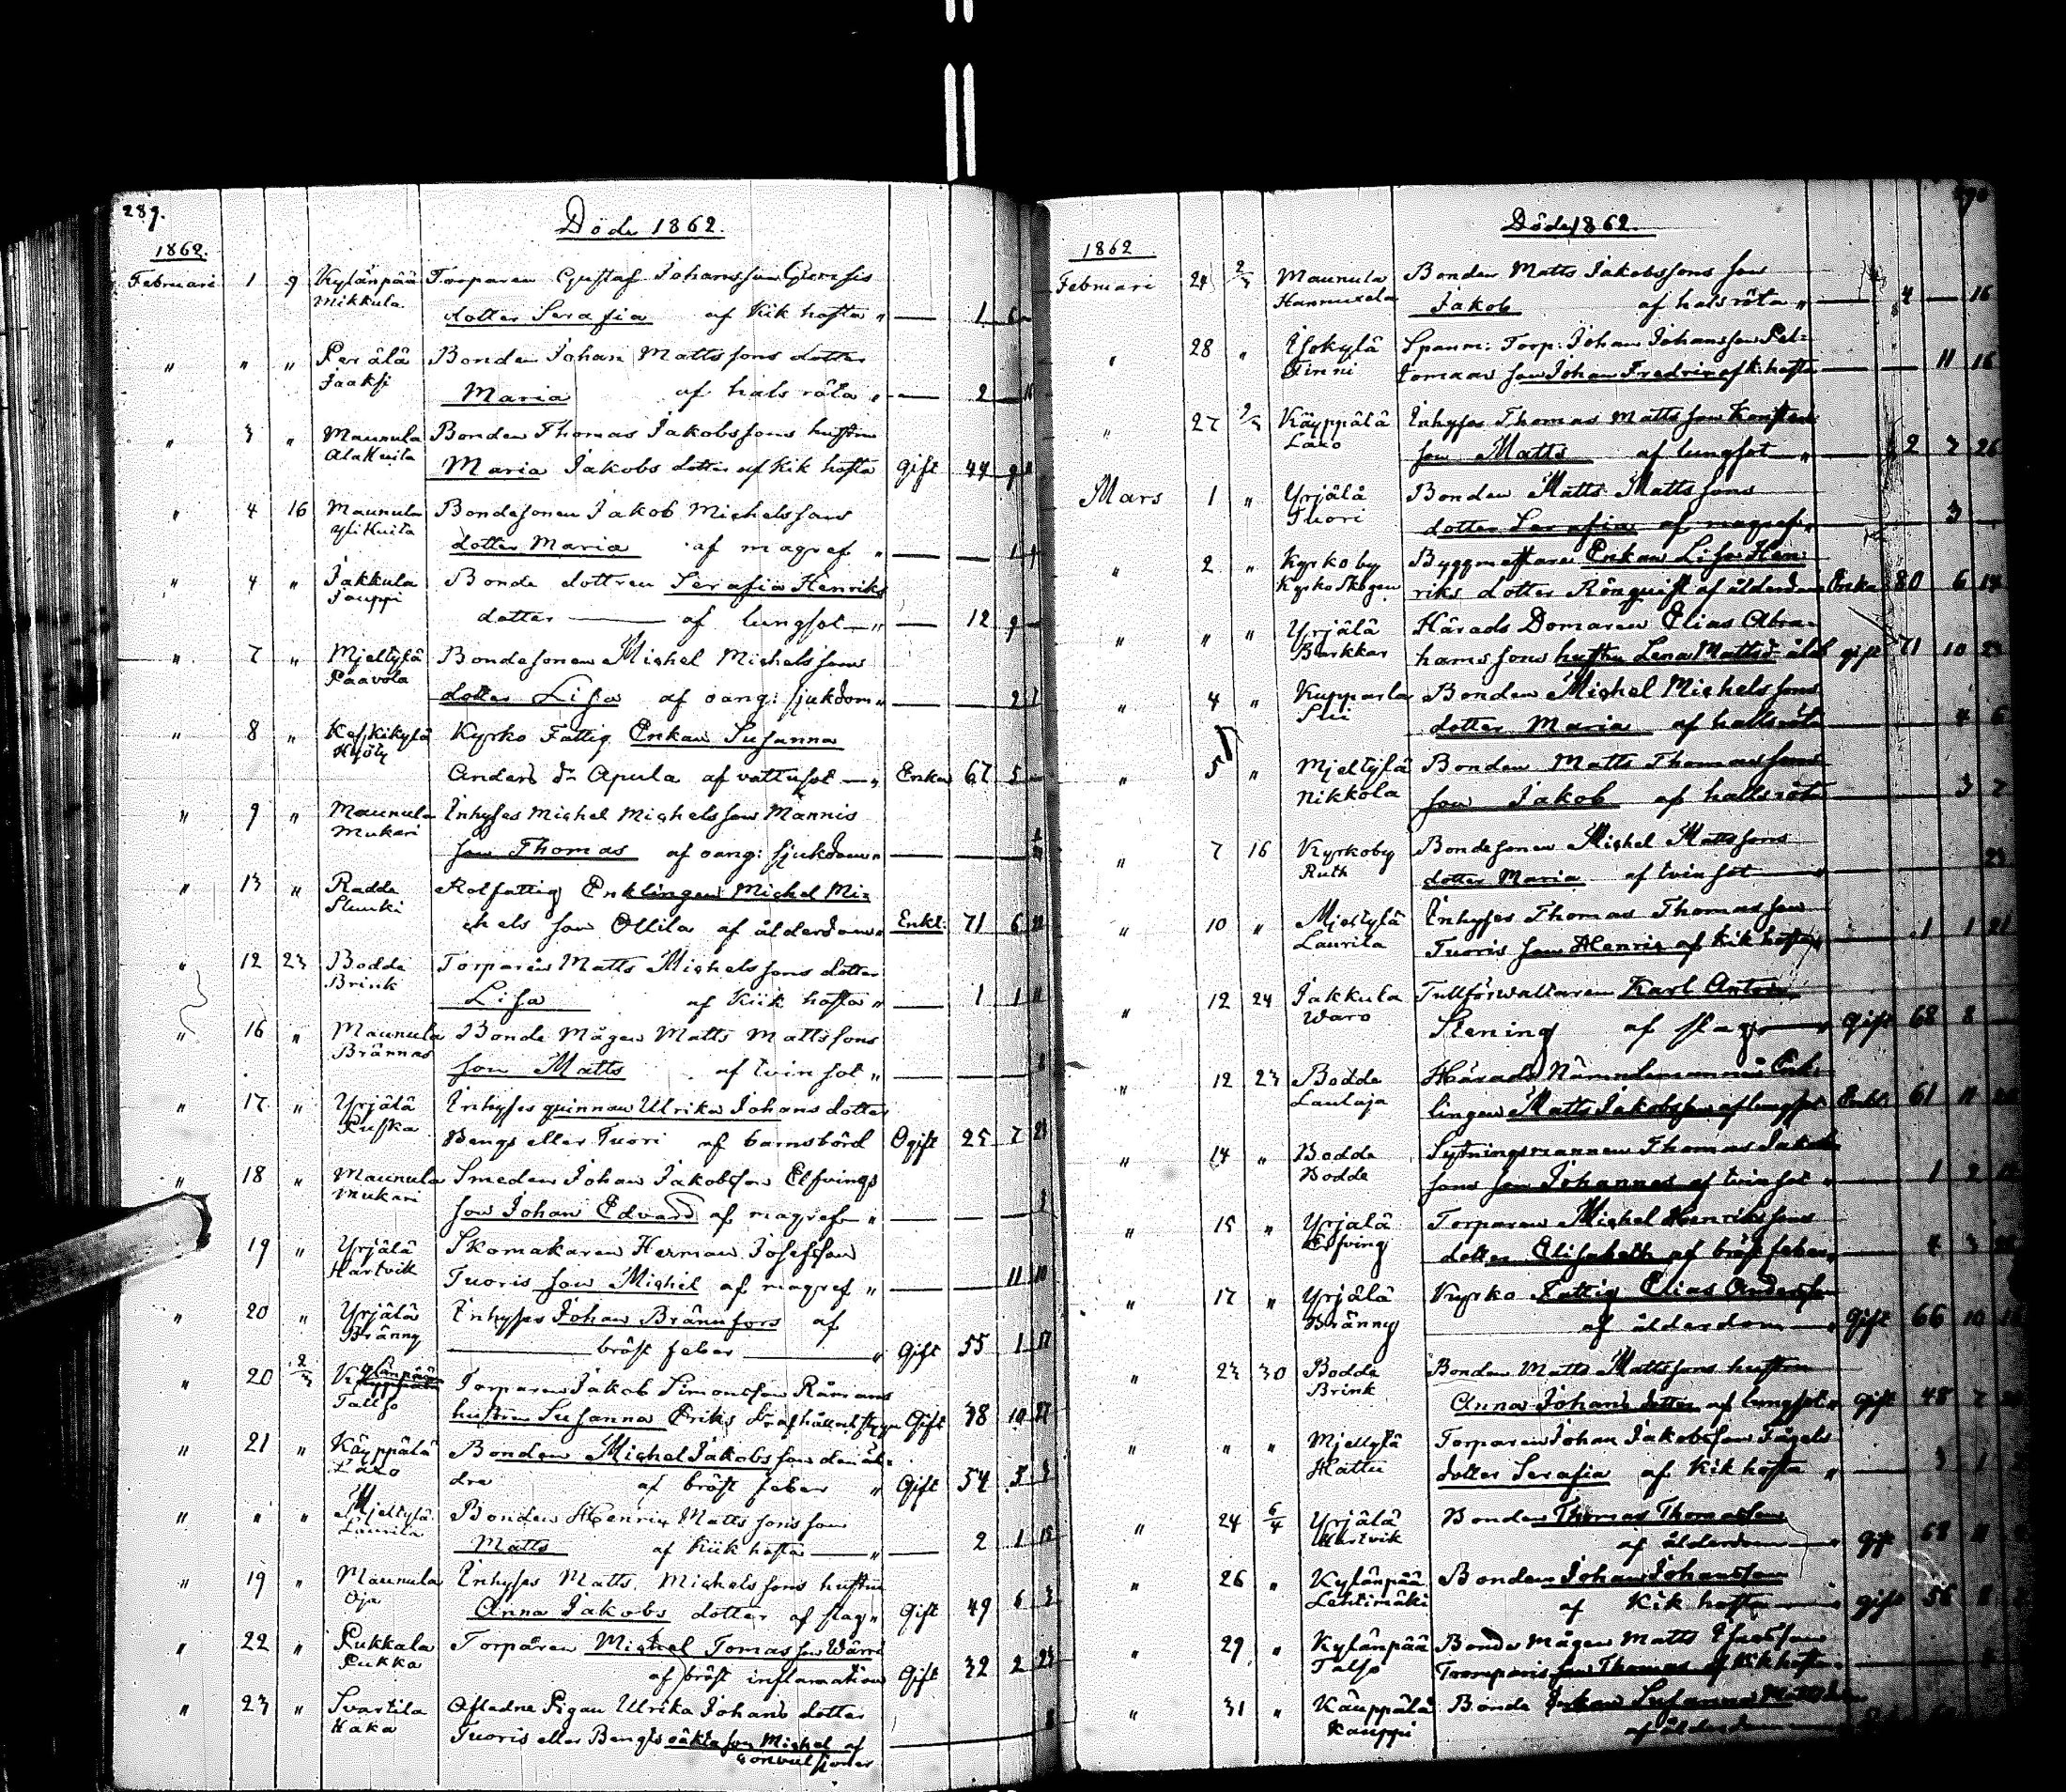 289.
Döde 1862.
1862.
Februari 1 9 Kylänpää Torparen Gustaf Johansson
Mikkula dotter Serafia af Kik hosta " — 1
" " " Perälä Bonden Johan Mattssons dotter
Jaaksi Maria af hals röta " — 2 —
" 3 " Maunula Bonden Thomas Jakobssons hustru
Alakuila Maria Jakobs dotter af Kik hosta gift 44 9
" 4 16 Maunula Bondesonen Jakob Michelssons
Ylikuila dotter Maria af magref " — — 1
" 4 " Jakkula Bonde dottren Serafia Henriks
Jouppi dotter — af lungsot — " — 12 9 —
" 7 " Mjeltylä Bondesonen Michel Michelssons
Paavola dotter Lisa af oang: sjukdom " — — 2 1
" 8 " Keskikylä Kyrko Fattig Enkan Susanna
Anders dr Apula af vattusot — " Enka 67 5 —
" 9 " Maunula Inhyses Michel Michelsson Männis
Mukari son Thomas af oang: sjukdom " — —
" 13 " Radde Rotfattig Enklingen Michel Mi-
Slunki chels son Ollila af ålderdom " Enkl: 71 6
" 12 23 Bodde Torparen Matts Michelssons dotter
Brink Lisa af Kiik hosta " — 1 1
" 16 " Maunula Bonde Mågen Matts Mattssons
Brännas son Matts af tvinsot " — —
" 17 " Yrjälä Inhyses quinnan Ulrika Johans dotter
Bengs eller Tuori af barnsbörd Ogift 25 7 23
" 18 " Maunula Smeden Johan Jakobsson Elfvings
Mukari son Johan Edvard af magref " — —
19 " Yrjälä Skomakaren Herman Josefsson
Hartvik Tuoris son Michel af magref " — 11 10
" 20 " Yrjälä Inhyses Johan Brännfors af
Bränny — bröst feber — " Gift 55 1 17
" 20 2/3 Kylänpää Torparen Jakob Simonsson Råmans
Tallso hustru Susanna Eriks dr af Gift 38 10
" 21 " Käyppälä Bonden Michel Jakobsson den äl-
Laxo dre af bröst feber " Gift 54 3 3
" " " Mjeltylä Bonden Henrik Mattssons son
Laurila Matts af Kiik hosta — " — 2 1 15
" 19 " Maunula Inhyses Matts Michelssons hustru
Oja Anna Jakobs dotter af slag " Gift 49 6 3
" 22 " Pukkala Torparen Michel Tomasson Wärri
Pukka af bröst inflamation Gift 32 2 23
" 23 " Svartila Aflednе Pigan Ulrika Johans dotter
Kaka Tuoris eller Bengs oäkta son Michel af —
convulsioner
Döde 1862.
1862
Februari 24 2/3 Maunula Bonden Matts Jakobssons son
Hannuxela Jakob af halsröta " — 4 — 16
" 28 " Isokylä Spanm: Torp: Johan Johansson Pel-
Finni tomaas son Johan Fredrik af k: hosta — — 11 16
" 27 2/3 Käyppälä Inhyses Thomas Mattsson
Laxo son Matts af lungsot — " — 2 7 26
Mars 1 " Yrjälä Bonden Matts Mattssons
Tuori dotter Serafia af magref " — 3 —
" 2 " Kyrkoby Byggmästare Enkan Lisa Hen-
Kyrkoskogen riks dotter Rönqvist af ålderdom Enka 80 6 14
" " " Yrjälä Härads Domaren Elias Abra-
Barkkar hamssons hustru Lena Matts d: åld gift 71 10 23
" 4 " Kupparla Bonden Michel Michelssons
dotter Maria af hallsröt — 4 6
" 5 " Mjeltylä Bonden Matts Thomassons
Nikkola son Jakob af hallsröt — 3 7
" 7 16 Kyrkoby Bondesonen Michel Mattssons
Ruth dotter Maria af tvinsot — 23
" 10 " Mjeltylä Inhyses Thomas Thomasson
Laurila Tuoris son Henrik af Kik hosta " 1 1 21
" 12 24 Jakkula Tullförvaltaren Karl Anton
Waro Stening af slag — " Gift 68 8 —
" 12 23 Bodde Härads Nämndemannen Enk-
Laulaja lingen Matts Jakobsson af lungsot Enkl: 61 11
" 14 " Bodde Sytningsmannen Thomas Jakob
Bodde sons son Johannes af tvinsot " — 1 2
" 15 " Yrjälä Torparen Michel Henrikssons
Elfving dotter Elisabeth af bröst feber " — 4 3
" 17 " Yrjälä Kyrko Fattig Elias Andersson
Bränny af ålderdom — " Gift 66 10
" 23 30 Bodde Bonden Matts Mattssons hustru
Brink Anna Johans dotter af lungsot " Gift 48 7
" " " Mjeltylä Torparen Johan Jakobsson Fågels
Hattu dotter Serafia af Kik hosta " — 3 1
" 24 6/4 Yrjälä Bonden Thomas Thomasson
Hartvik af ålderdom — " Gift 68 11
" 26 " Kylänpää Bonden Johan Johansson
Lehtimäki af Kik hosta — " gift 56 8
" 29 " Kylänpää Bonde Mågen Matts Isaksson
Talso Tromparis son Thomas af Kik hosta " —
" 31 " Käuppälä Bonde Enkan Susanna Matts dr
Kauppi af ålderdom —